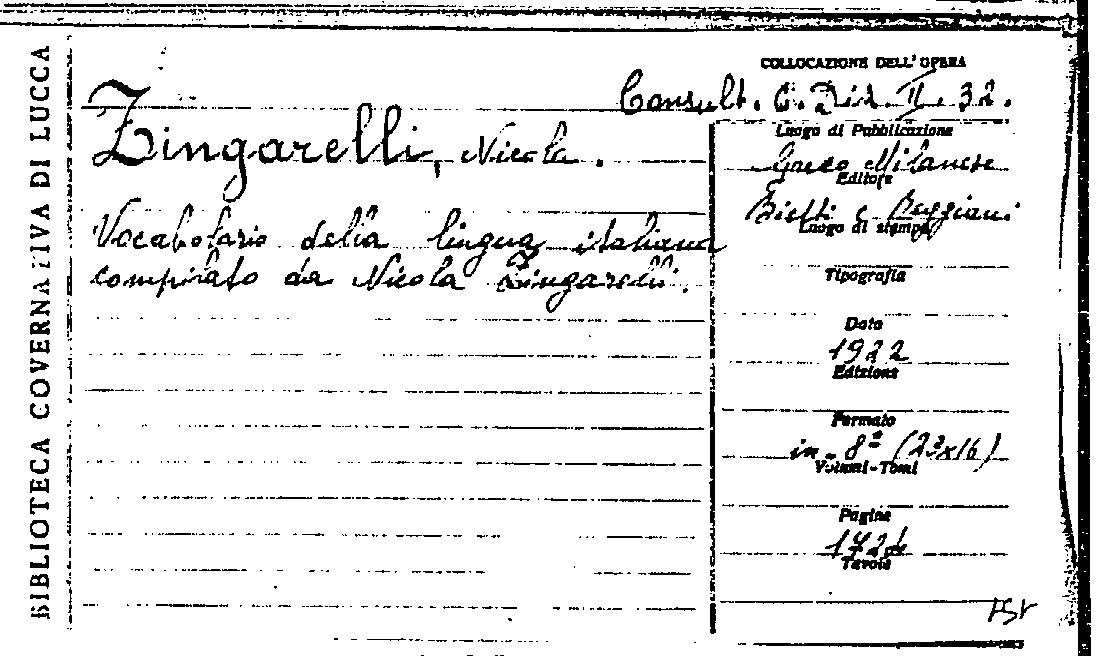 BIBLIOTECA GOVERNATIVA DI LUCCA
COLLOCAZIONE DELL'OPERA
Consult. C. Diz. II. 32.
Zingarelli, Nicola.
Vocabolario della lingua italiana
compilato da Nicola Zingarelli.
Luogo di Pubblicazione
Greco Milanese
Editore
Bietti e Reggiani
Luogo di stampa
Tipografia
Data
1922
Edizione
Formato
in-8º (23x16)
Volumi-Tomi
Pagine
Tavole